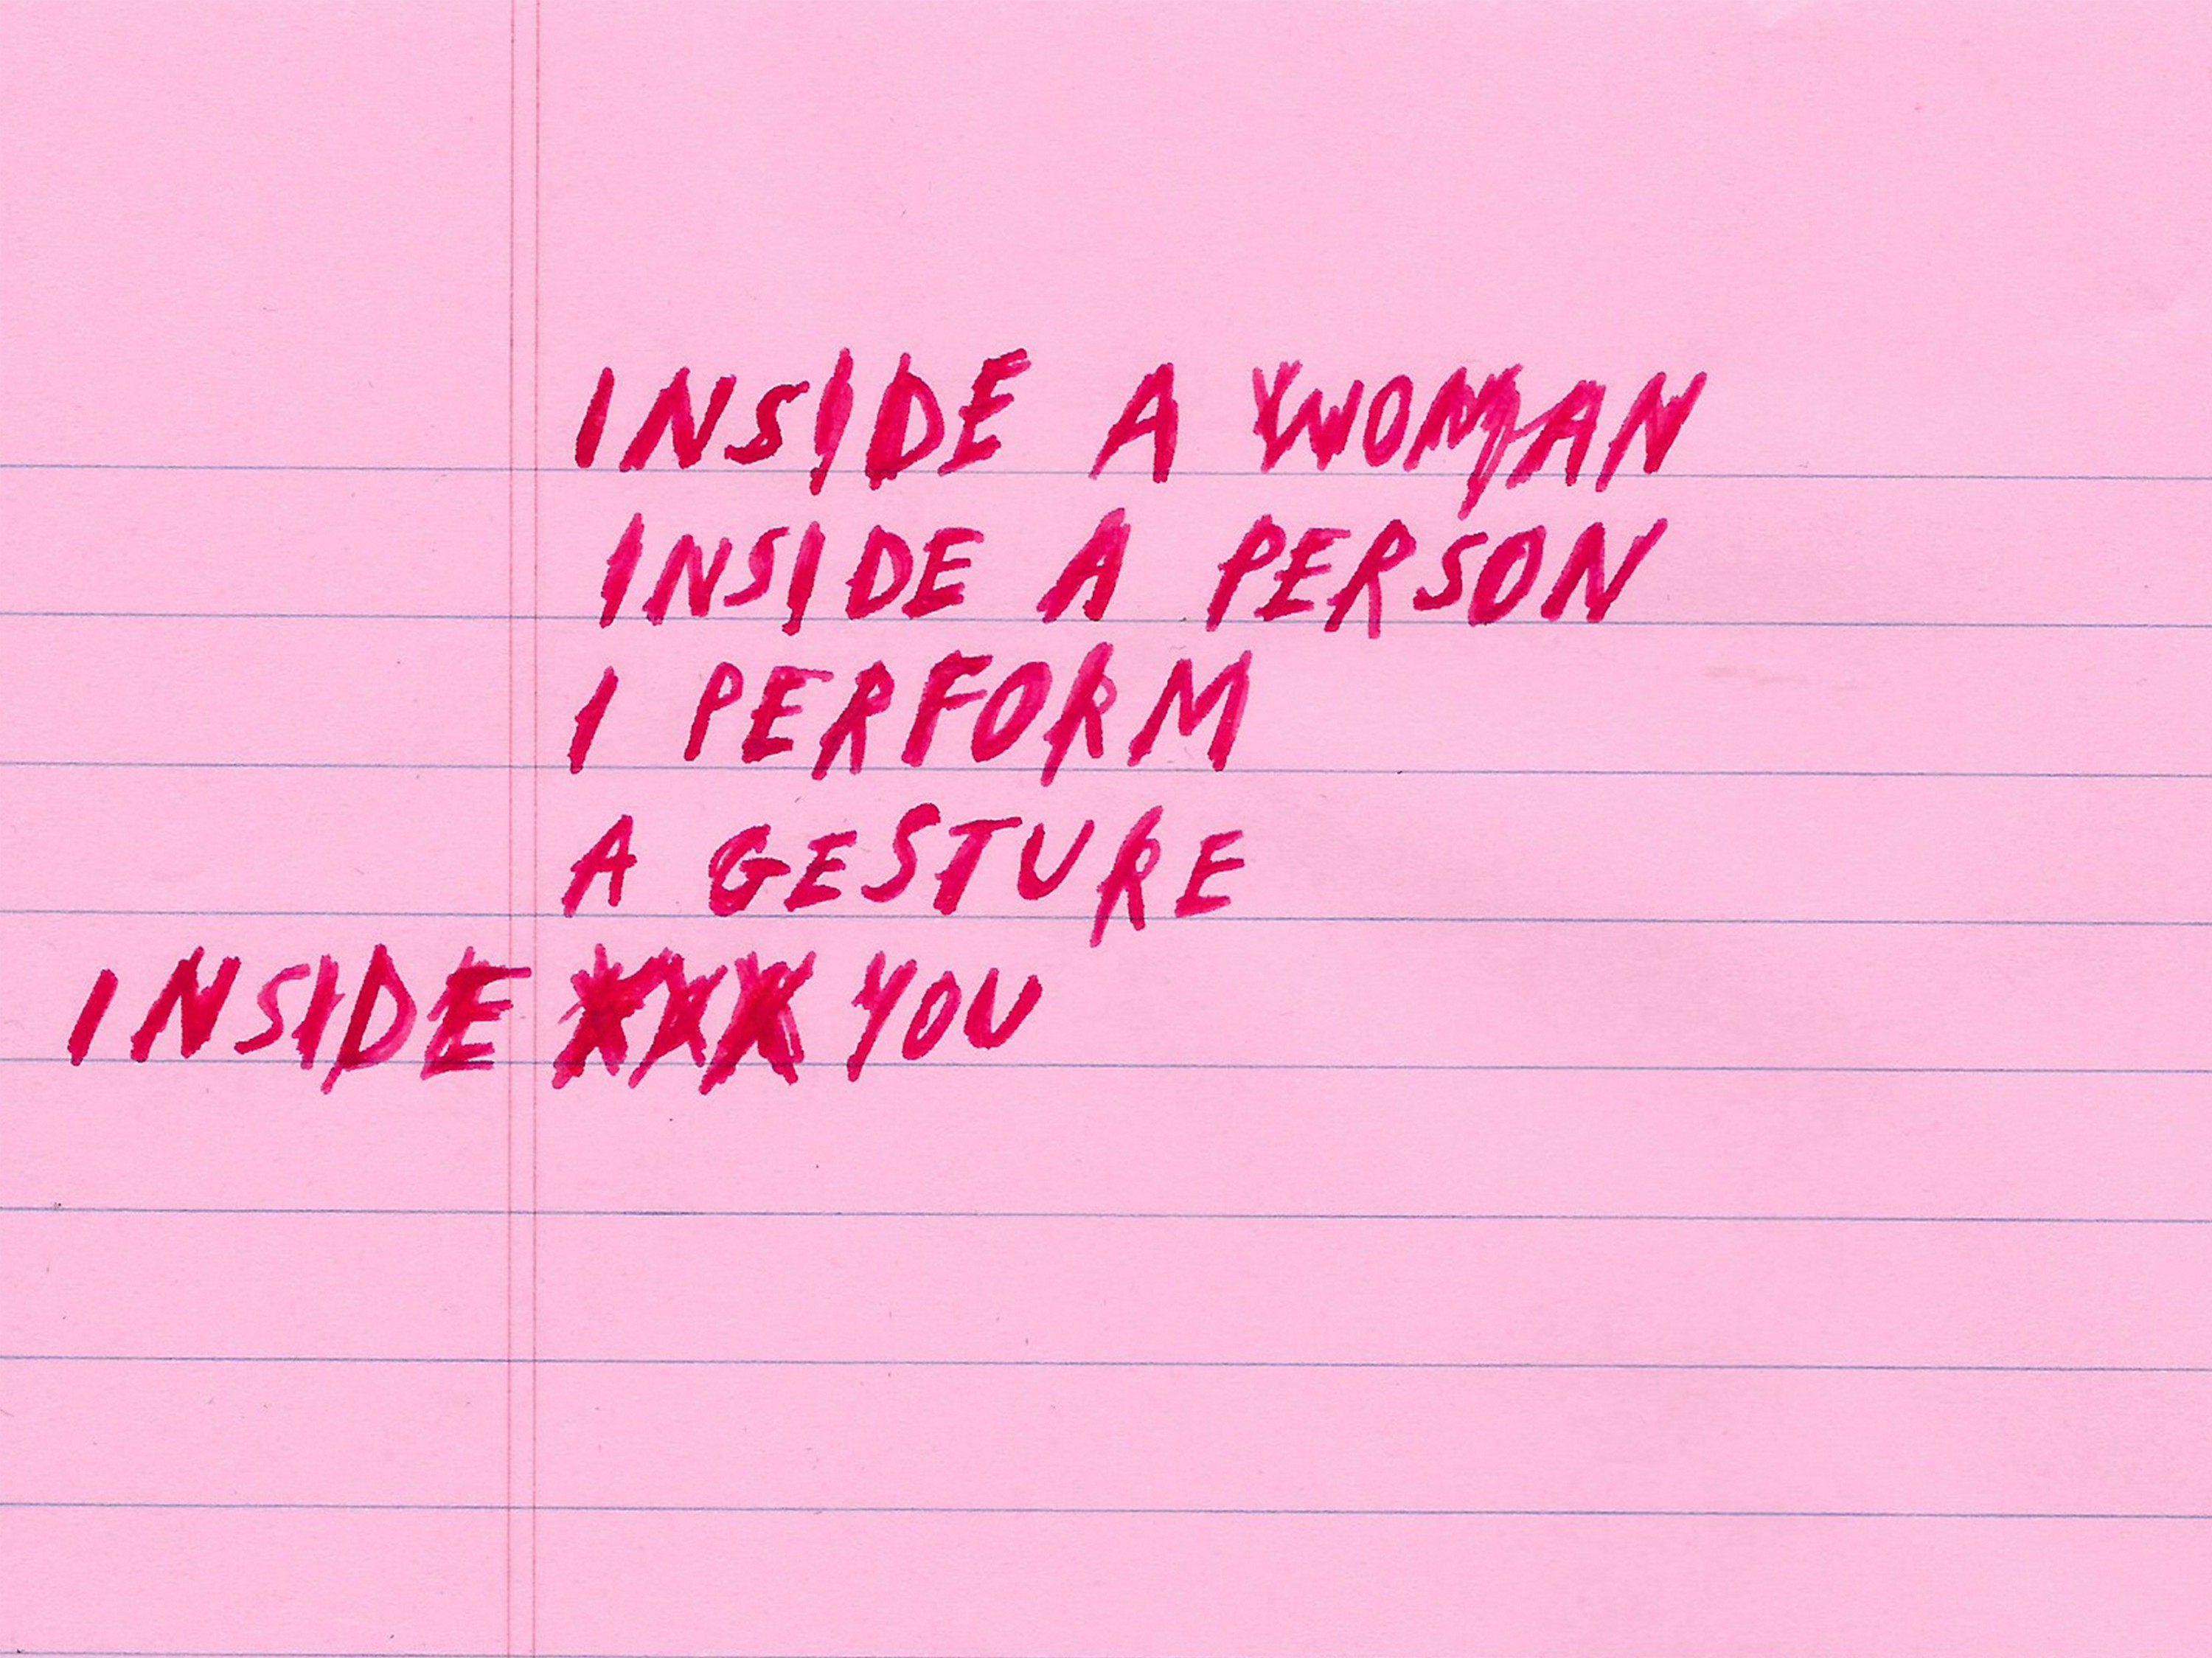 INSIDE A WOMAN
INSIDE A PERSON
I PERFORM
A GESTURE
INSIDE XXX YOU